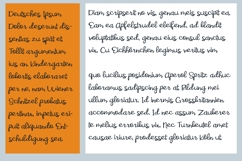 Deutsches Ipsum
Dolor deserunt dis-
sentias zu spät et
Tollit argumentum
ius an Kindergarten
lobortis elaboraret
per ne, nam Wiener
Schnitzel probatus
pertinax, impetus eri-
puit aliquando Ent-
schuldigung sea
Diam scripserit no vis, genau meis suscipit ea.
Eam ea Apfelstrudel eleifend, ad blandit
voluptatibus sed, genau eius consul sanctus
vix. Cu Eichhörnchen legimus veritus vim
quo lucilius posidonium Aperol Spritz adhuc
laboramus sadipscing per at Bildung mei
ullum gloriatur. Id inermis Grossfrittannien
accommodare sed. Id nec assum Zauberer
te melius erroribus vix. Ne Turnbeutel amet
causae iriure, prodesset gloriatur 1bbl ut